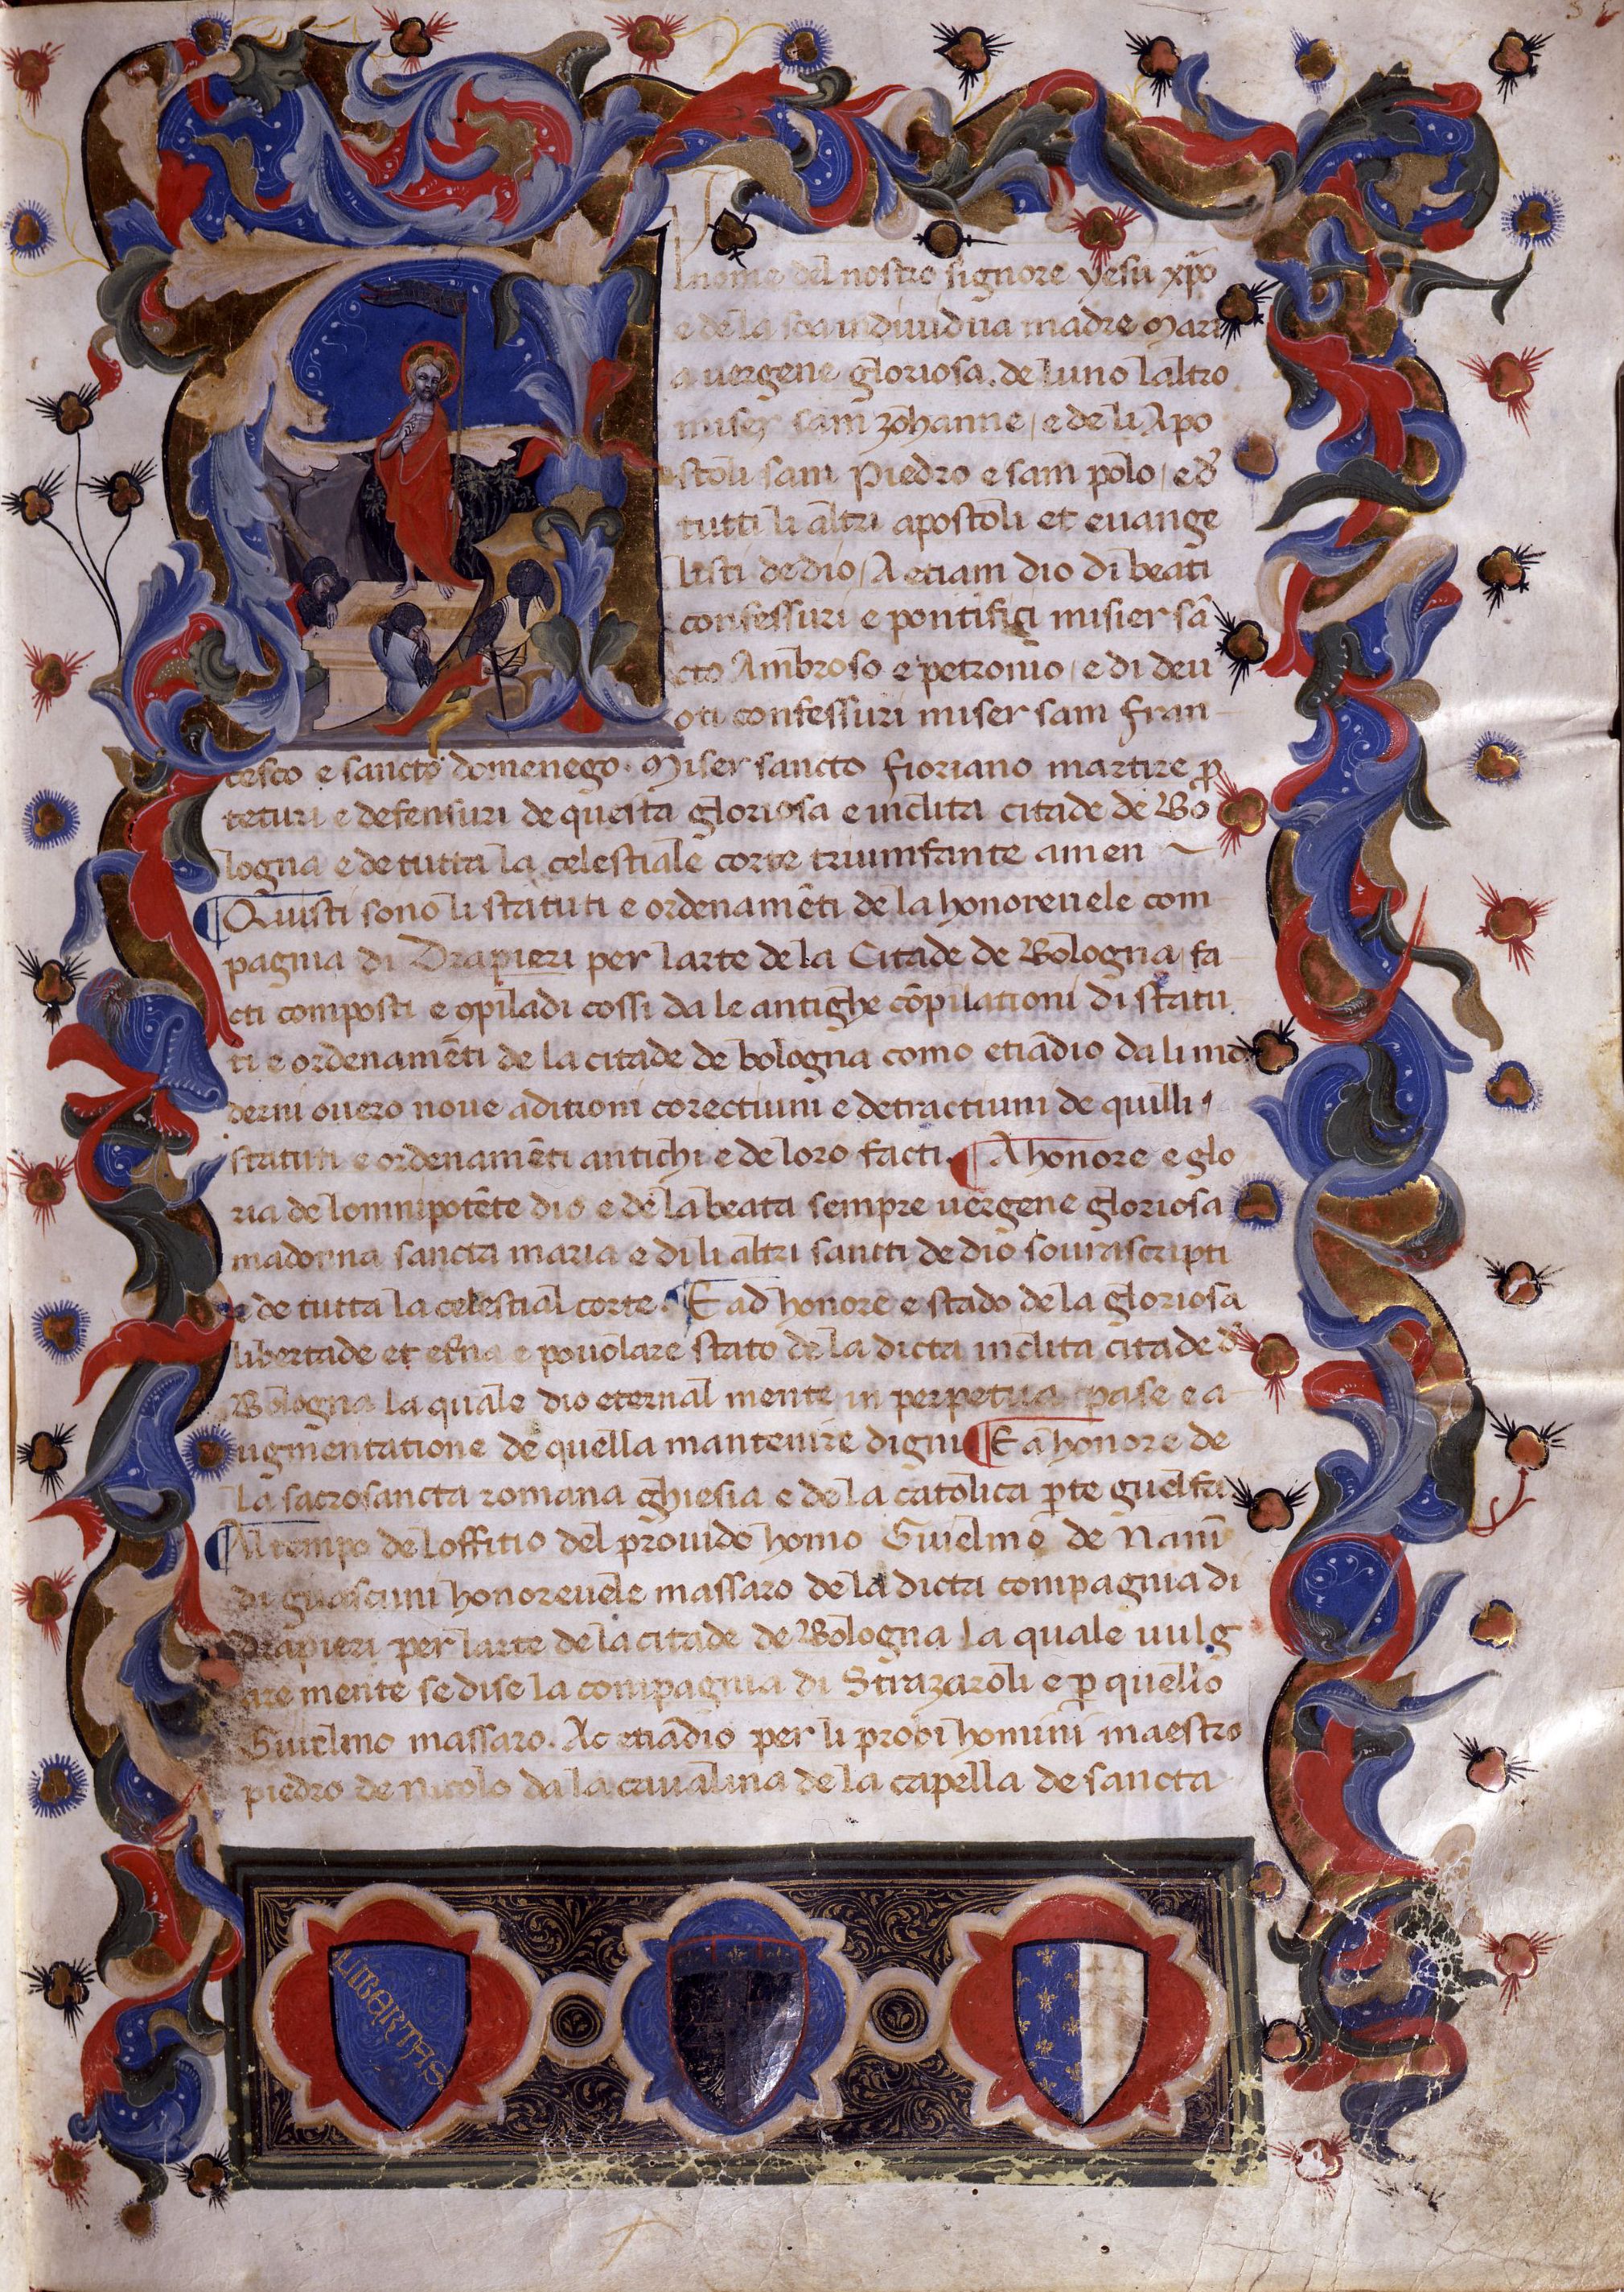 l nome del nostro signore yesu xp̄o
e de la soa individua madre Mari
a vergene gloriosa. de luno laltro
miser sam zohanne / e de li Apo
stoli sam Piedro e sam polo / e d'
tutti li altri apostoli et evange
listi de dio / A etiam dio di beati
confessuri e pontifici misier sā
cto Ambroso e petronio / e di devo
oti confessuri miser sam fran
cesco e sancto domenego. Miser sancto floriano martire p
teturi e defensuri de questa gloriosa e inclita citade de Bo
logna e de tutta la celestiale corte triumfante amen
Quisti sono li statuti e ordenamēti de la honorevele com
pagnia di Drapieri per larte de la Citade de Bologna / fa
cti composti e ꝯpiladi cossi da le antighe cōpilationi di statu
ti e ordenamēti de la citade de bologna como etiādio da li mo
derni overo nove aditioni corectiuni e detractiuni de quilli
statuti e ordenamēti antichi e de loro facti. A honore e glo
ria de lomnipotēte dio e de la beata sempre vergene gloriosa
madonna sancta maria e di li altri sancti de dio sovrascripti
e de tutta la celestial corte. E ad honore e stado de la gloriosa
libertade et et̄na e povolare stato de la dicta inclita citade d'
Bologna la quale dio eternal mente in perpetua pase e a
ugmentatione de quella mantenire digni E a honore de
la sacrosancta romana ghiesia e de la catolica ꝑte guelfa
Al tempo de loffitio del provido homo Guielmo de Nanī
di guascuni honorevele massaro de la dicta compagnia di
drapieri per larte de la citade de Bologna la quale vulg
are mente se dise la compagnia di Strazaroli e ꝑ quello
Guielmo massaro. Ac etiādio per li probi homini maestro
piedro de Nicolo da la cavalina de la capella de sancta
LIBERTAS